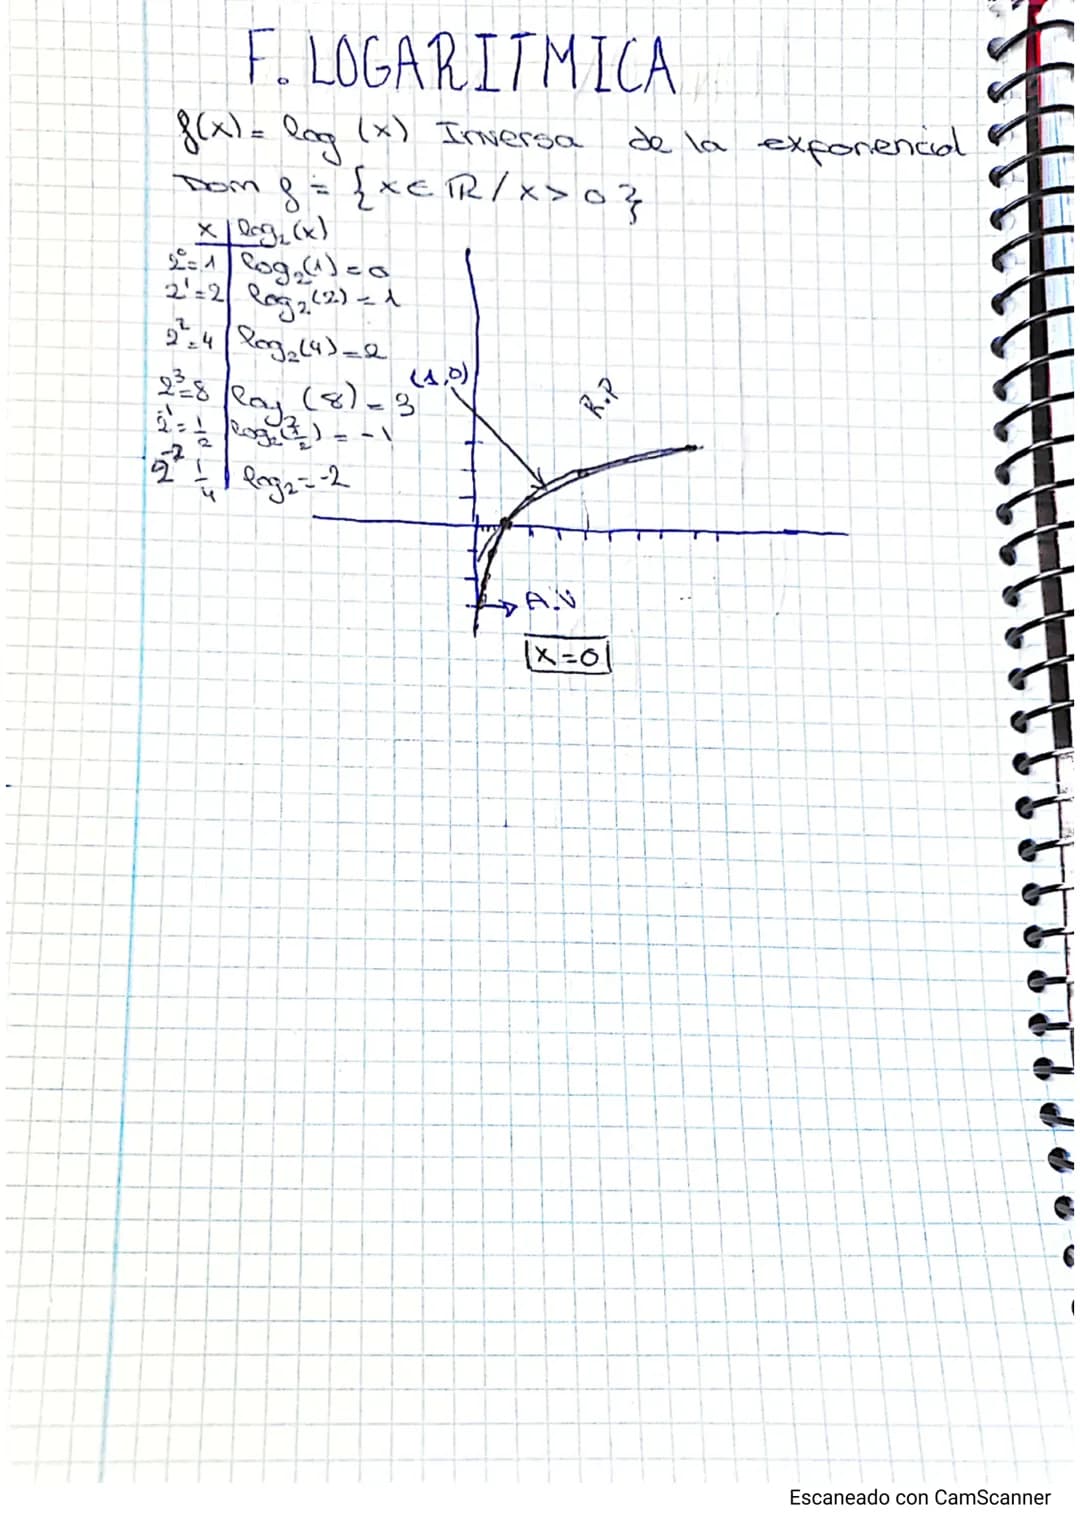 F. LOGARITMICA
f(x) = log (x) Inversa de la exponencial
Dom f = {x ∈ ℝ / x > 0}
x | log₂(x)
2⁰=1 | log₂(1) = 0
2¹=2 | log₂(2) = 1
2²=4 | log₂(4) = 2
2³=8 | log₂(8) = 3
2⁻¹=1/2 | log₂(1/2) = -1
2⁻² 1/4 | log₂ = -2
(1,0)
R.P
A.V
x=0
Escaneado con CamScanner